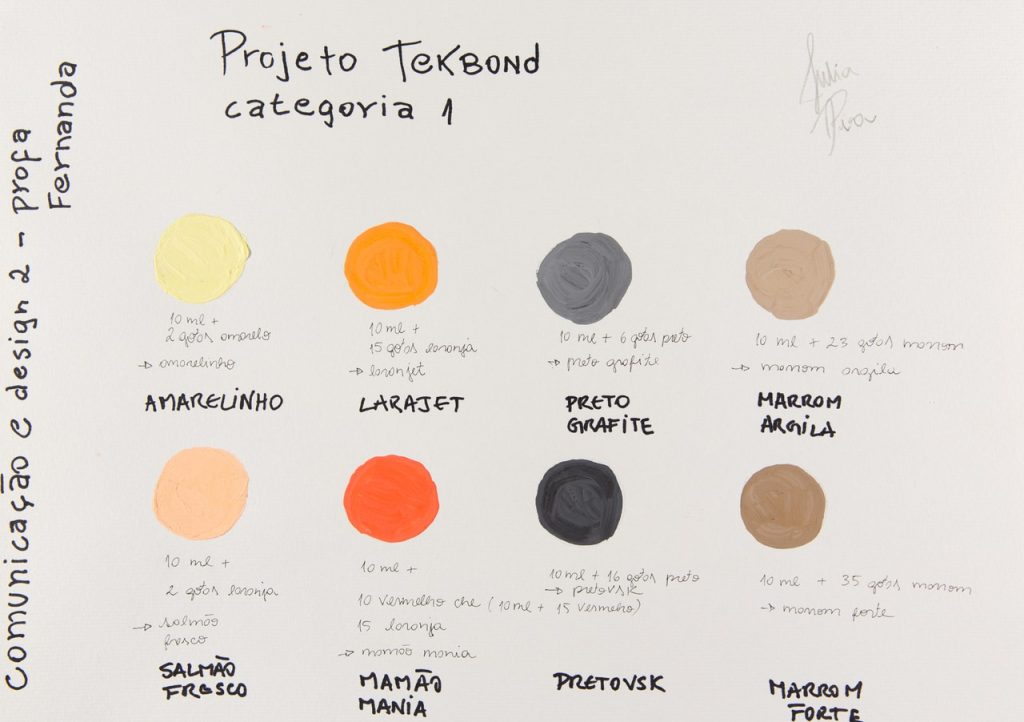 Projeto TEKBOND
categoria 1
Julia
Comunicação e design 2 - profa
Fernanda
10 ml +
2 gotas amarelo
→ amarelinho
AMARELINHO
10 ml +
15 gotas laranja
→ laranjet
LARAJET
10 ml + 6 gotas preto
→ preto grafite
PRETO
GRAFITE
10 ml + 23 gotas marrom
→ marrom argila
MARROM
ARGILA
10 ml +
2 gotas laranja
→ salmão
fresco
SALMÃO
FRESCO
10 ml +
10 vermelho che (10ml + 15 vermelho)
15 laranja
→ mamão mania
MAMÃO
MANIA
10 ml + 16 gotas preto
→ pretovsk
PRETOVSK
10 ml + 35 gotas marrom
→ marrom forte
MARROM
FORTE